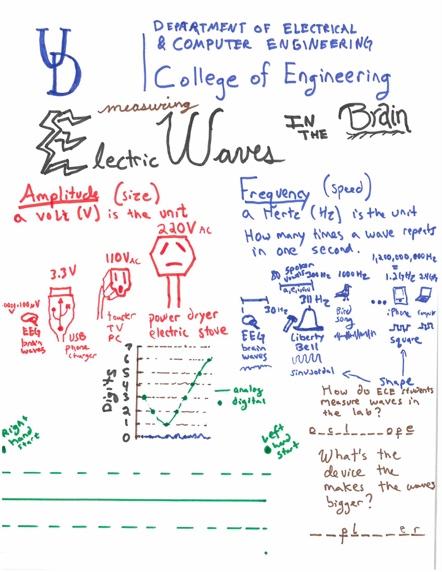 UD
DEPARTMENT OF ELECTRICAL
& COMPUTER ENGINEERING
College of Engineering
measuring
Electric Waves IN THE Brain
Amplitude (size)
a volt (V) is the unit
220V AC
110V AC
3.3 V
EEG
brain
waves
USB
Phone
charger
toaster
TV
PC
power dryer
electric stove
Frequency (speed)
a Hertz (Hz) is the unit
How many times a wave repeats
in one second.
1,210,000,000 Hz
= 1.21 GHz
spoken
vowels
300Hz
1000 Hz
a,e,i,o,u
30Hz
EEG
brain
waves
Liberty
Bell
sinusoidal
Bird
song
iPhone
square
shape
Digits
7
6
5
4
3
2
1
0
analog
digital
Right
hand
start
Left
hand
start
How do ECE students
measure waves in
the lab?
o_c_l___ope
What's the
device the
makes the waves
bigger?
__pl___er